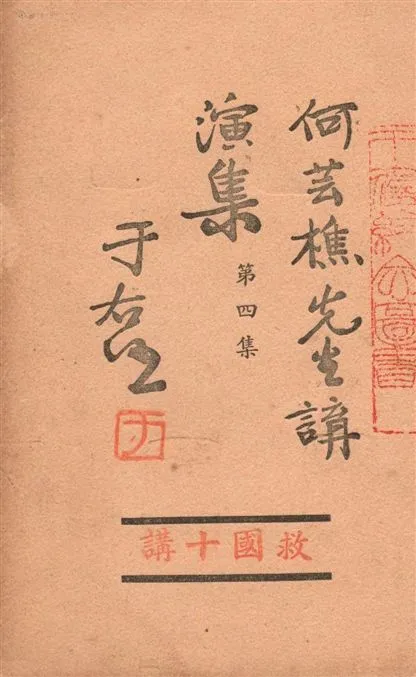 何芸樵先生講
演集
第四集
于右任
右任
救國十講